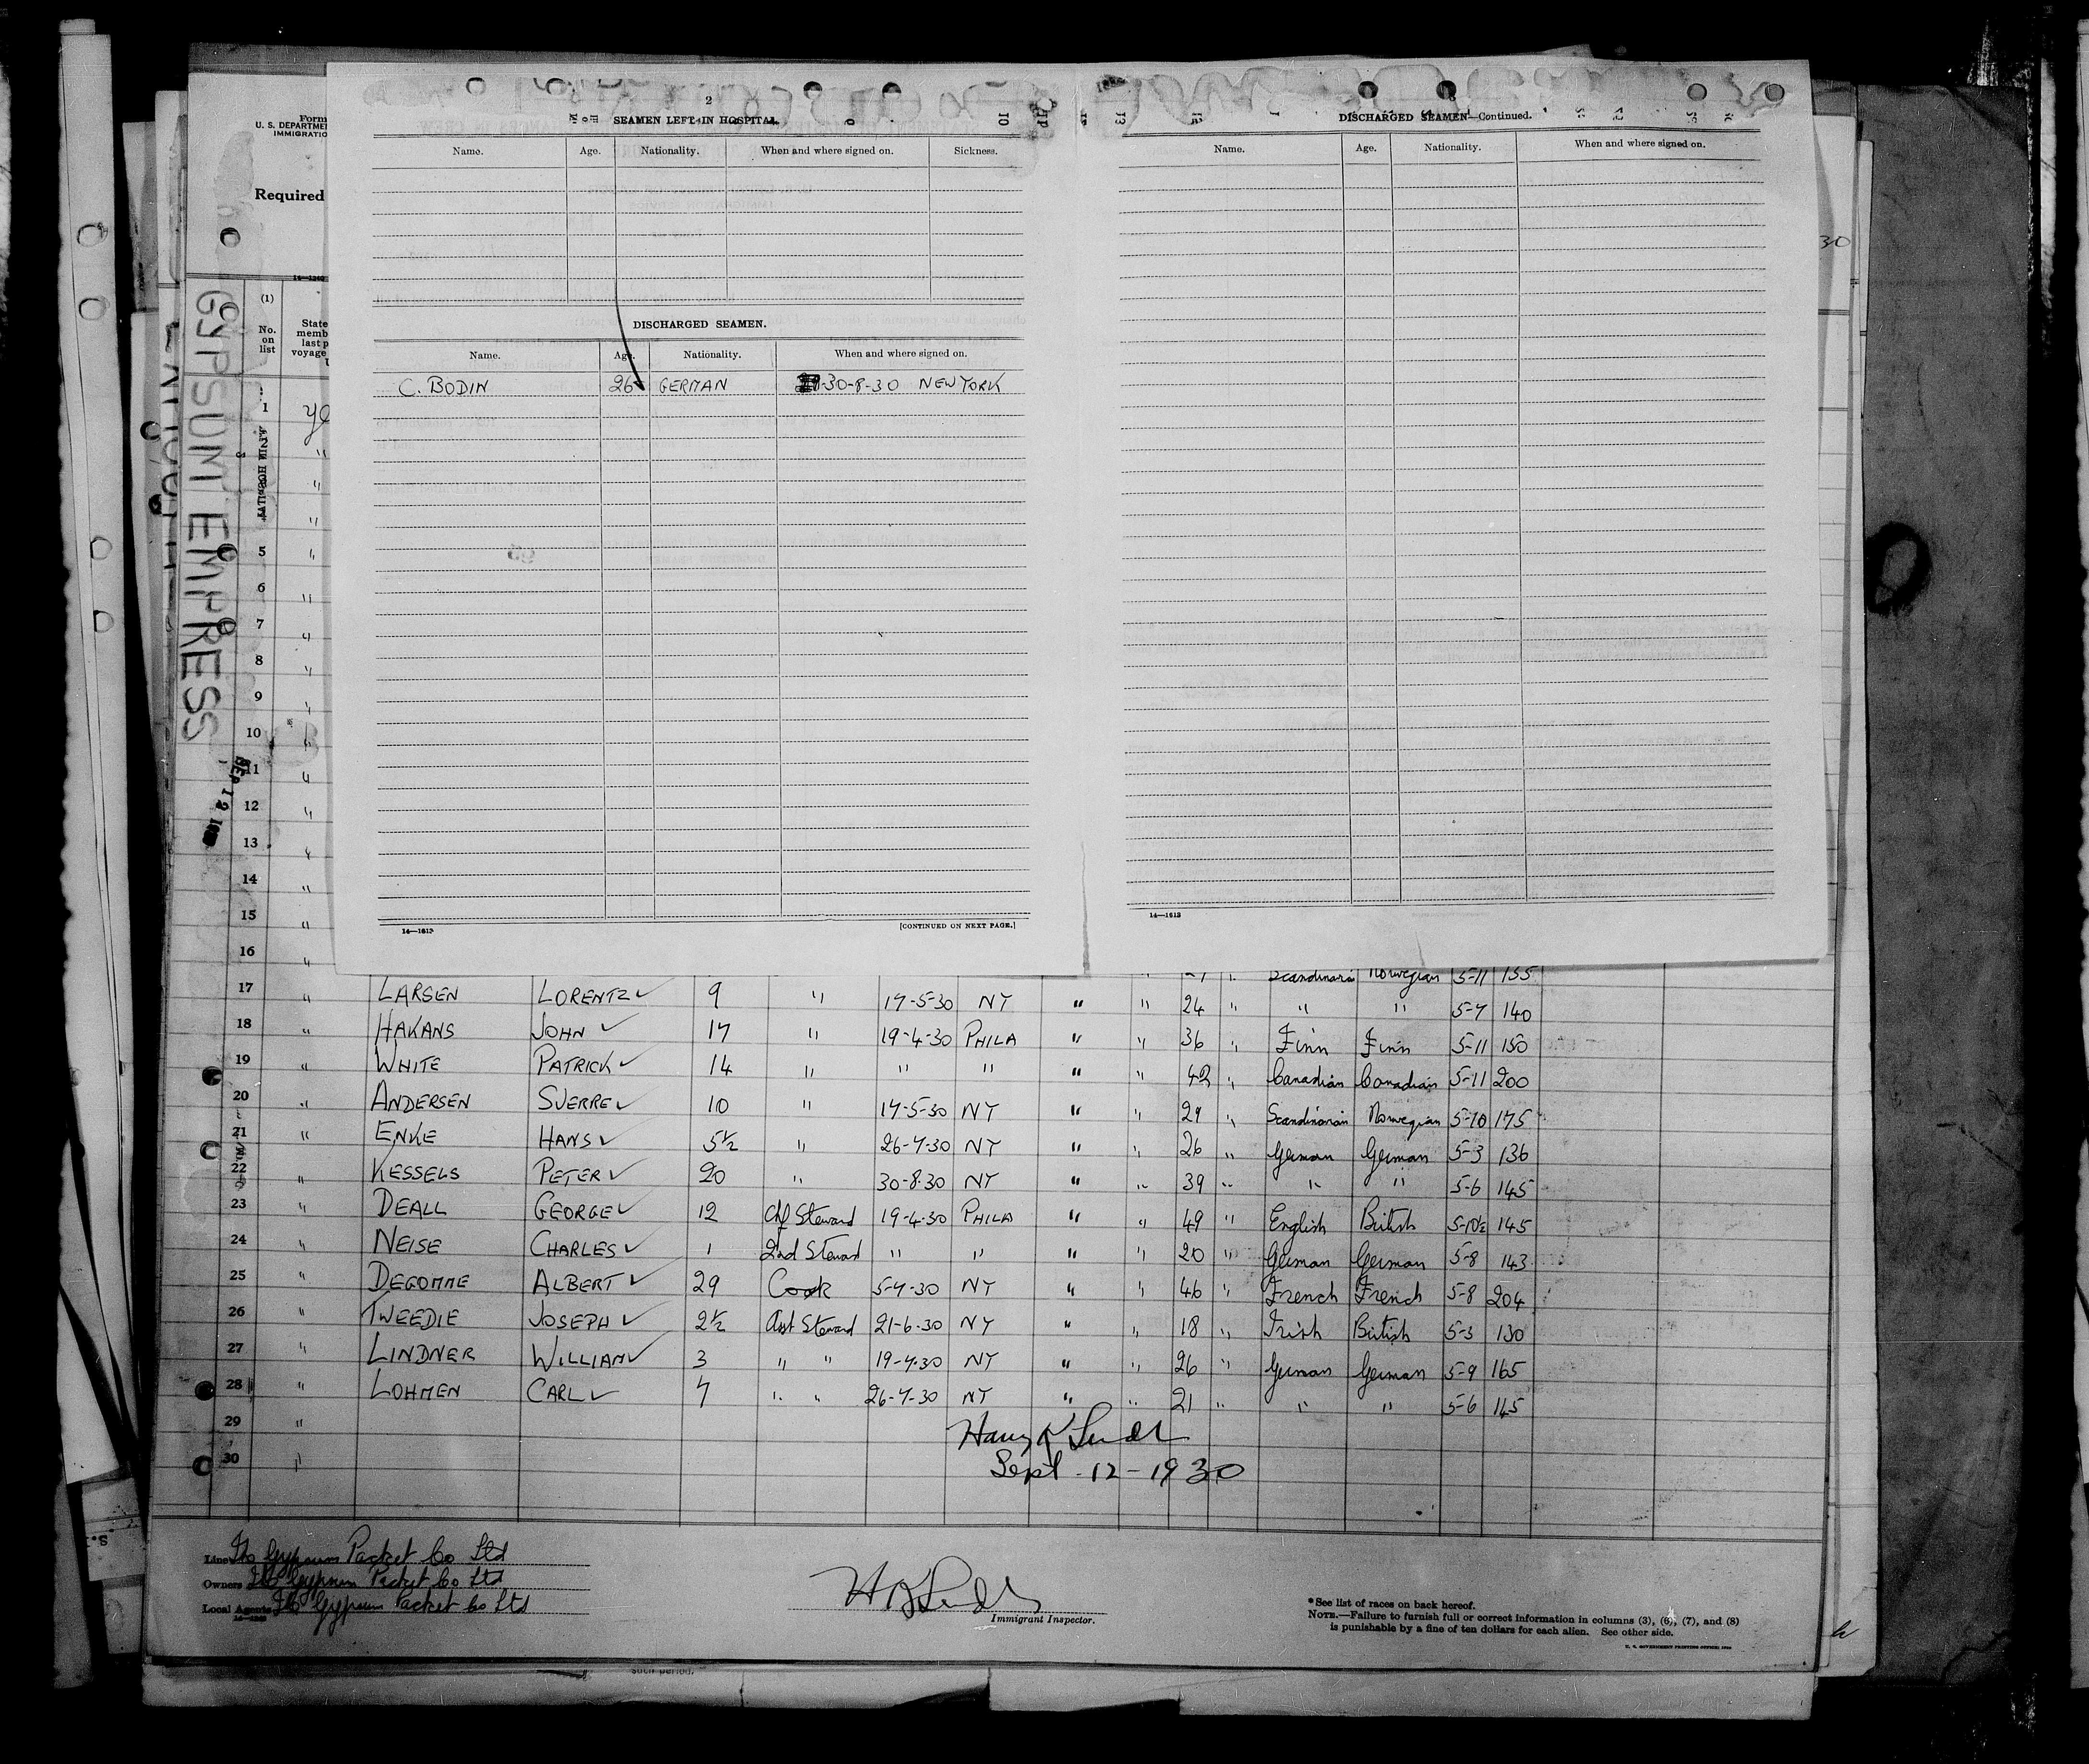 2
SEAMEN LEFT IN HOSPITAL.
Name. Age. Nationality. When and where signed on. Sickness.
DISCHARGED SEAMEN.
Name. Age. Nationality. When and where signed on.
C. BODIN 26 GERMAN 30-8-30 NEW YORK
14—1613
[CONTINUED ON NEXT PAGE.]
DISCHARGED SEAMEN—Continued.
Name. Age. Nationality. When and where signed on.
14—1613
Form
U. S. DEPARTME
IMMIGRATIO
Required
14—1240
30
GYPSUM EMPRESS
SEP 12
(1)
No. on list
State
memb
last p
voyage
1
5 "
6 "
7 "
8 "
9 "
10 "
11 "
12 "
13 "
14 "
15 "
16 " Scandinavian Norwegian 5-11 155
17 " LARSEN LORENTZ ✓ 9 " 17-5-30 NY " " 24 " " " 5-7 140
18 " HAKANS JOHN ✓ 17 " 19-4-30 PHILA " " 36 " Finn Finn 5-11 150
19 " WHITE PATRICK ✓ 14 " " " " " 42 " Canadian Canadian 5-11 200
20 " ANDERSEN SVERRE ✓ 10 " 17-5-30 NY " " 29 " Scandinavian Norwegian 5-10 175
21 " ENKE HANS ✓ 5½ " 26-7-30 NY " " 26 " German German 5-3 136
22 " KESSELS PETER ✓ 20 " 30-8-30 NY " " 39 " " " 5-6 145
23 " DEALL GEORGE ✓ 12 Chf Steward 19-4-30 PHILA " " 49 " English British 5-10½ 145
24 " NEISE CHARLES ✓ 1 2nd Steward " " " " 20 " German German 5-8 143
25 " DEGOMME ALBERT ✓ 29 Cook 5-7-30 NY " " 46 " French French 5-8 204
26 " TWEEDIE JOSEPH ✓ 2½ Asst Steward 21-6-30 NY " " 18 " Irish British 5-3 130
27 " LINDNER WILLIAM ✓ 3 " " 19-7-30 NY " " 26 " German German 5-9 165
28 " LOHMEN CARL ✓ 7 " " 26-7-30 NY " " 21 " " " 5-6 145
29 "
30 "
Sept. 12-1930
Line The Gypsum Packet Co Ltd
Owners The Gypsum Packet Co Ltd
Local Agents The Gypsum Packet Co Ltd
14—1240
Immigrant Inspector.
* See list of races on back hereof.
NOTE.—Failure to furnish full or correct information in columns (3), (6), (7), and (8)
is punishable by a fine of ten dollars for each alien. See other side.
U. S. GOVERNMENT PRINTING OFFICE: 1930
such period.